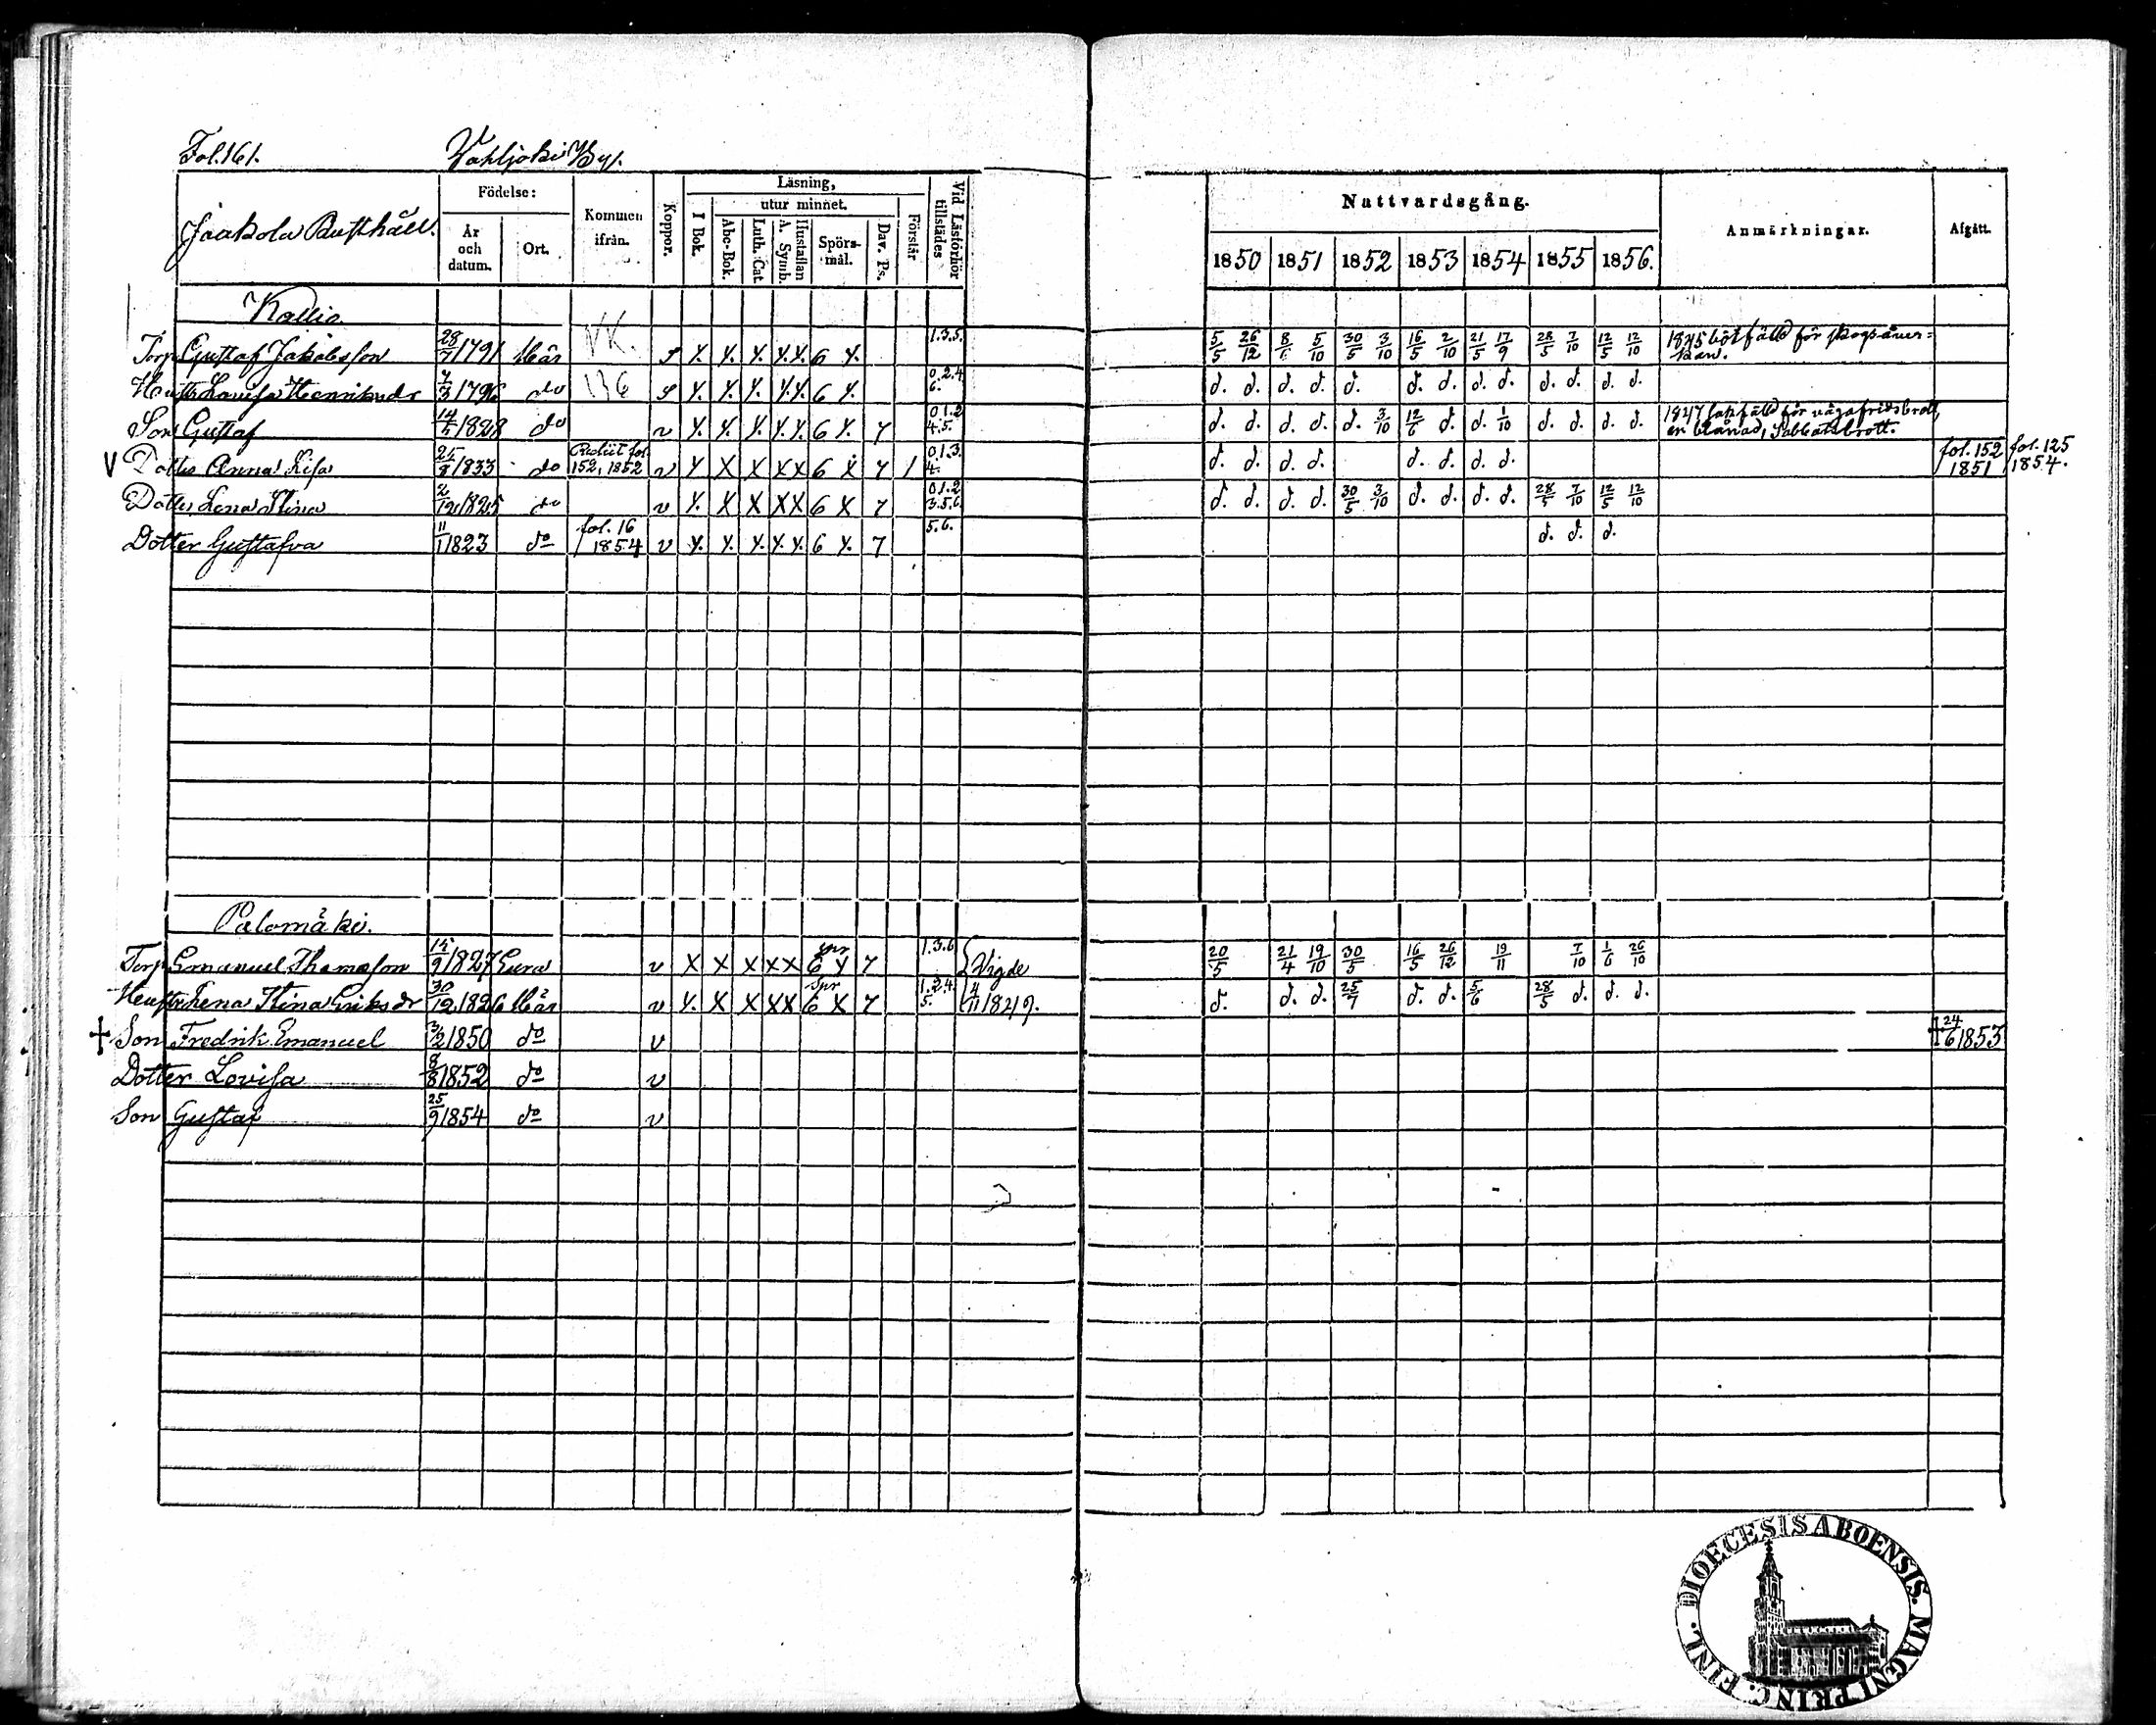 Fol. 161. Vahljoki By.
Jaakola Rusthåll.
Födelse:
År och datum.
Ort.
Kommen ifrån.
Koppor.
Läsning,
I Bok.
utur minnet.
Abc-Bok.
Luth. Cat.
Hustaflan A. Symb.
Spörs-mål.
Dav. Ps.
Förstår
Vid Läsförhör tillstädes
Nattvardsgång.
1850 1851 1852 1853 1854 1855 1856.
Anmärkningar.
Afgått.
Kallio
Torp Gustaf Jakobsson 28/7 1791 Kår S Y. Y. Y. Y. Y. 6 Y. 1.3.5. 5/5 26/12 5/10 30/5 3/10 16/5 2/10 21/5 17/9 28/5 7/10 12/5 12/10 1845 bötfälld för skogsåver=
kan.
Hustr Lovisa Henriksdr 1796 do S Y. Y. Y. Y. Y. 6 Y. 0.2.4. 6. d. d. d. d. d. d. d. d. d. d. d. d. d.
Son Gustaf 1828 do v Y. Y. Y. Y. Y. 6 Y. 7 0.1.2 4.5. d. d. d. d. d. 3/10 12/6 d. d. 1/10 d. d. d. d. 1847 sakfälld för vägafridsbrott,
Sabbatsbrott.
V Dotter Anna Lisa 25/8 1833 do fol. 152, 1852 v Y X X X X 6 X 7 1 0.1.3. 4. d. d. d. d. d. d. d. d. fol. 152 1851 fol. 125 1854.
Dotter Lena Stina 2/12 1825 do v Y. X X X X 6 X 7 0.1.2 3.5.6. d. d. d. d. 30/5 3/10 d. d. d. d. 28/5 7/10 12/5 12/10
Dotter Gustafva 11/11 1823 do fol. 16 1854 v Y. Y. Y. Y. Y. 6 Y. 7 5.6. d. d. d.
Palomäki.
Torp Emanuel Thomasson 15/9 1827 Eura v X X X X X spr 6 X 7 1.3.6 Vigde 20/5 21/4 19/10 30/5 16/5 26/12 19/11 7/10 1/6 26/10
Hustr Lena Stina Eriksdr 30/12 1826 Kår v Y. X X X X spr 6 X 7 1.2.4. 5. 4/11 1849. d. d. d. 25/7 d. d. 5/6 28/5 d. d. d.
+ Son Fredrik Emanuel 3/2 1850 do v + 24/6 1853
Dotter Lovisa 8/8 1852 do v
Son Gustaf 25/9 1854 do v
DIOECESIS ABOENSIS. MAGNI PRINC. FINL.